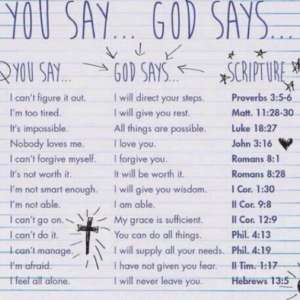 YOU SAY... GOD SAYS...
YOU SAY... GOD SAYS... SCRIPTURE
I can't figure it out. I will direct your steps. Proverbs 3:5-6
I'm too tired. I will give you rest. Matt. 11:28-30
It's impossible. All things are possible. Luke 18:27
Nobody loves me. I love you. John 3:16
I can't forgive myself. I forgive you. Romans 8:1
It's not worth it. It will be worth it. Romans 8:28
I'm not smart enough. I will give you wisdom. I Cor. 1:30
I'm not able. I am able. II Cor. 9:8
I can't go on. My grace is sufficient. II Cor. 12:9
I can't do it. You can do all things. Phil. 4:13
I can't manage. I will supply all your needs. Phil. 4:19
I'm afraid. I have not given you fear. II Tim. 1:17
I feel all alone. I will never leave you. Hebrews 13:5